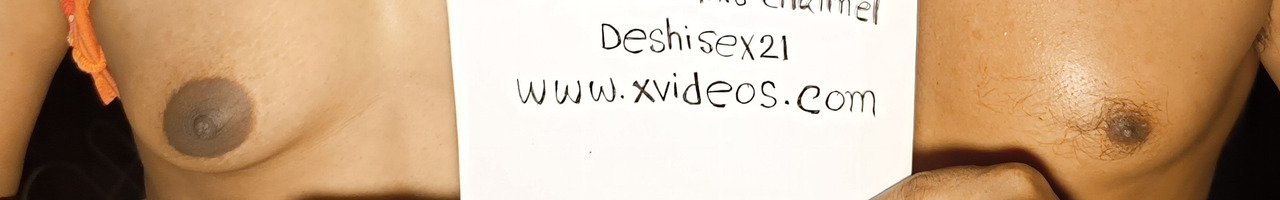 channel
Deshisex21
www.xvideos.com